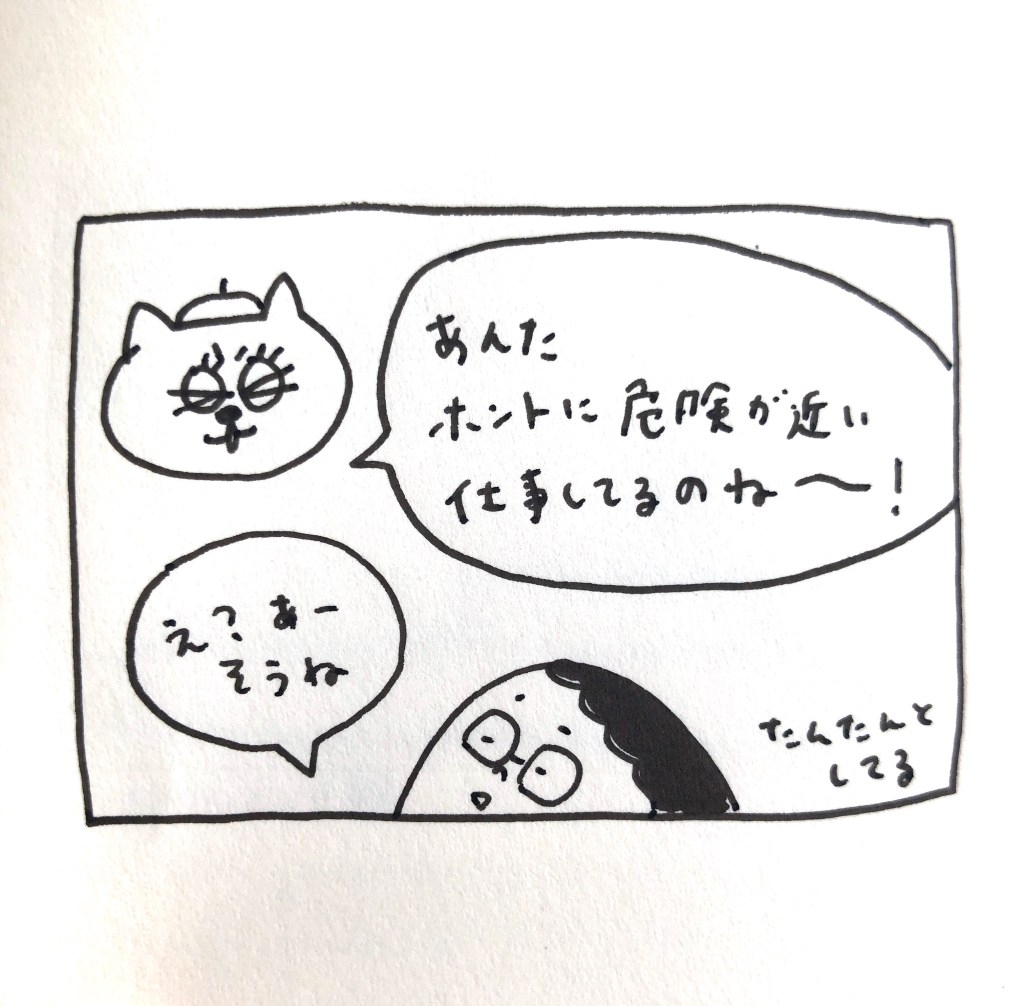 あんた
ホントに危険が近い
仕事してるのね〜!
えっ、あー
そうね
たんたんと
してる